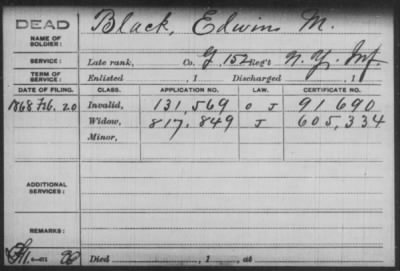 DEAD Black, Edwin M.
NAME OF SOLDIER:
SERVICE: Late rank, Co. G, 152 Reg't N.Y. Inf
TERM OF SERVICE: Enlisted , 1 Discharged , 1
DATE OF FILING. CLASS. APPLICATION NO. LAW. CERTIFICATE NO.
1868 Feb. 20 Invalid, 131,569 O J 91 690
Widow, 817,849 J 605,334
Minor,
ADDITIONAL SERVICES:
REMARKS:
Died , 1 , at